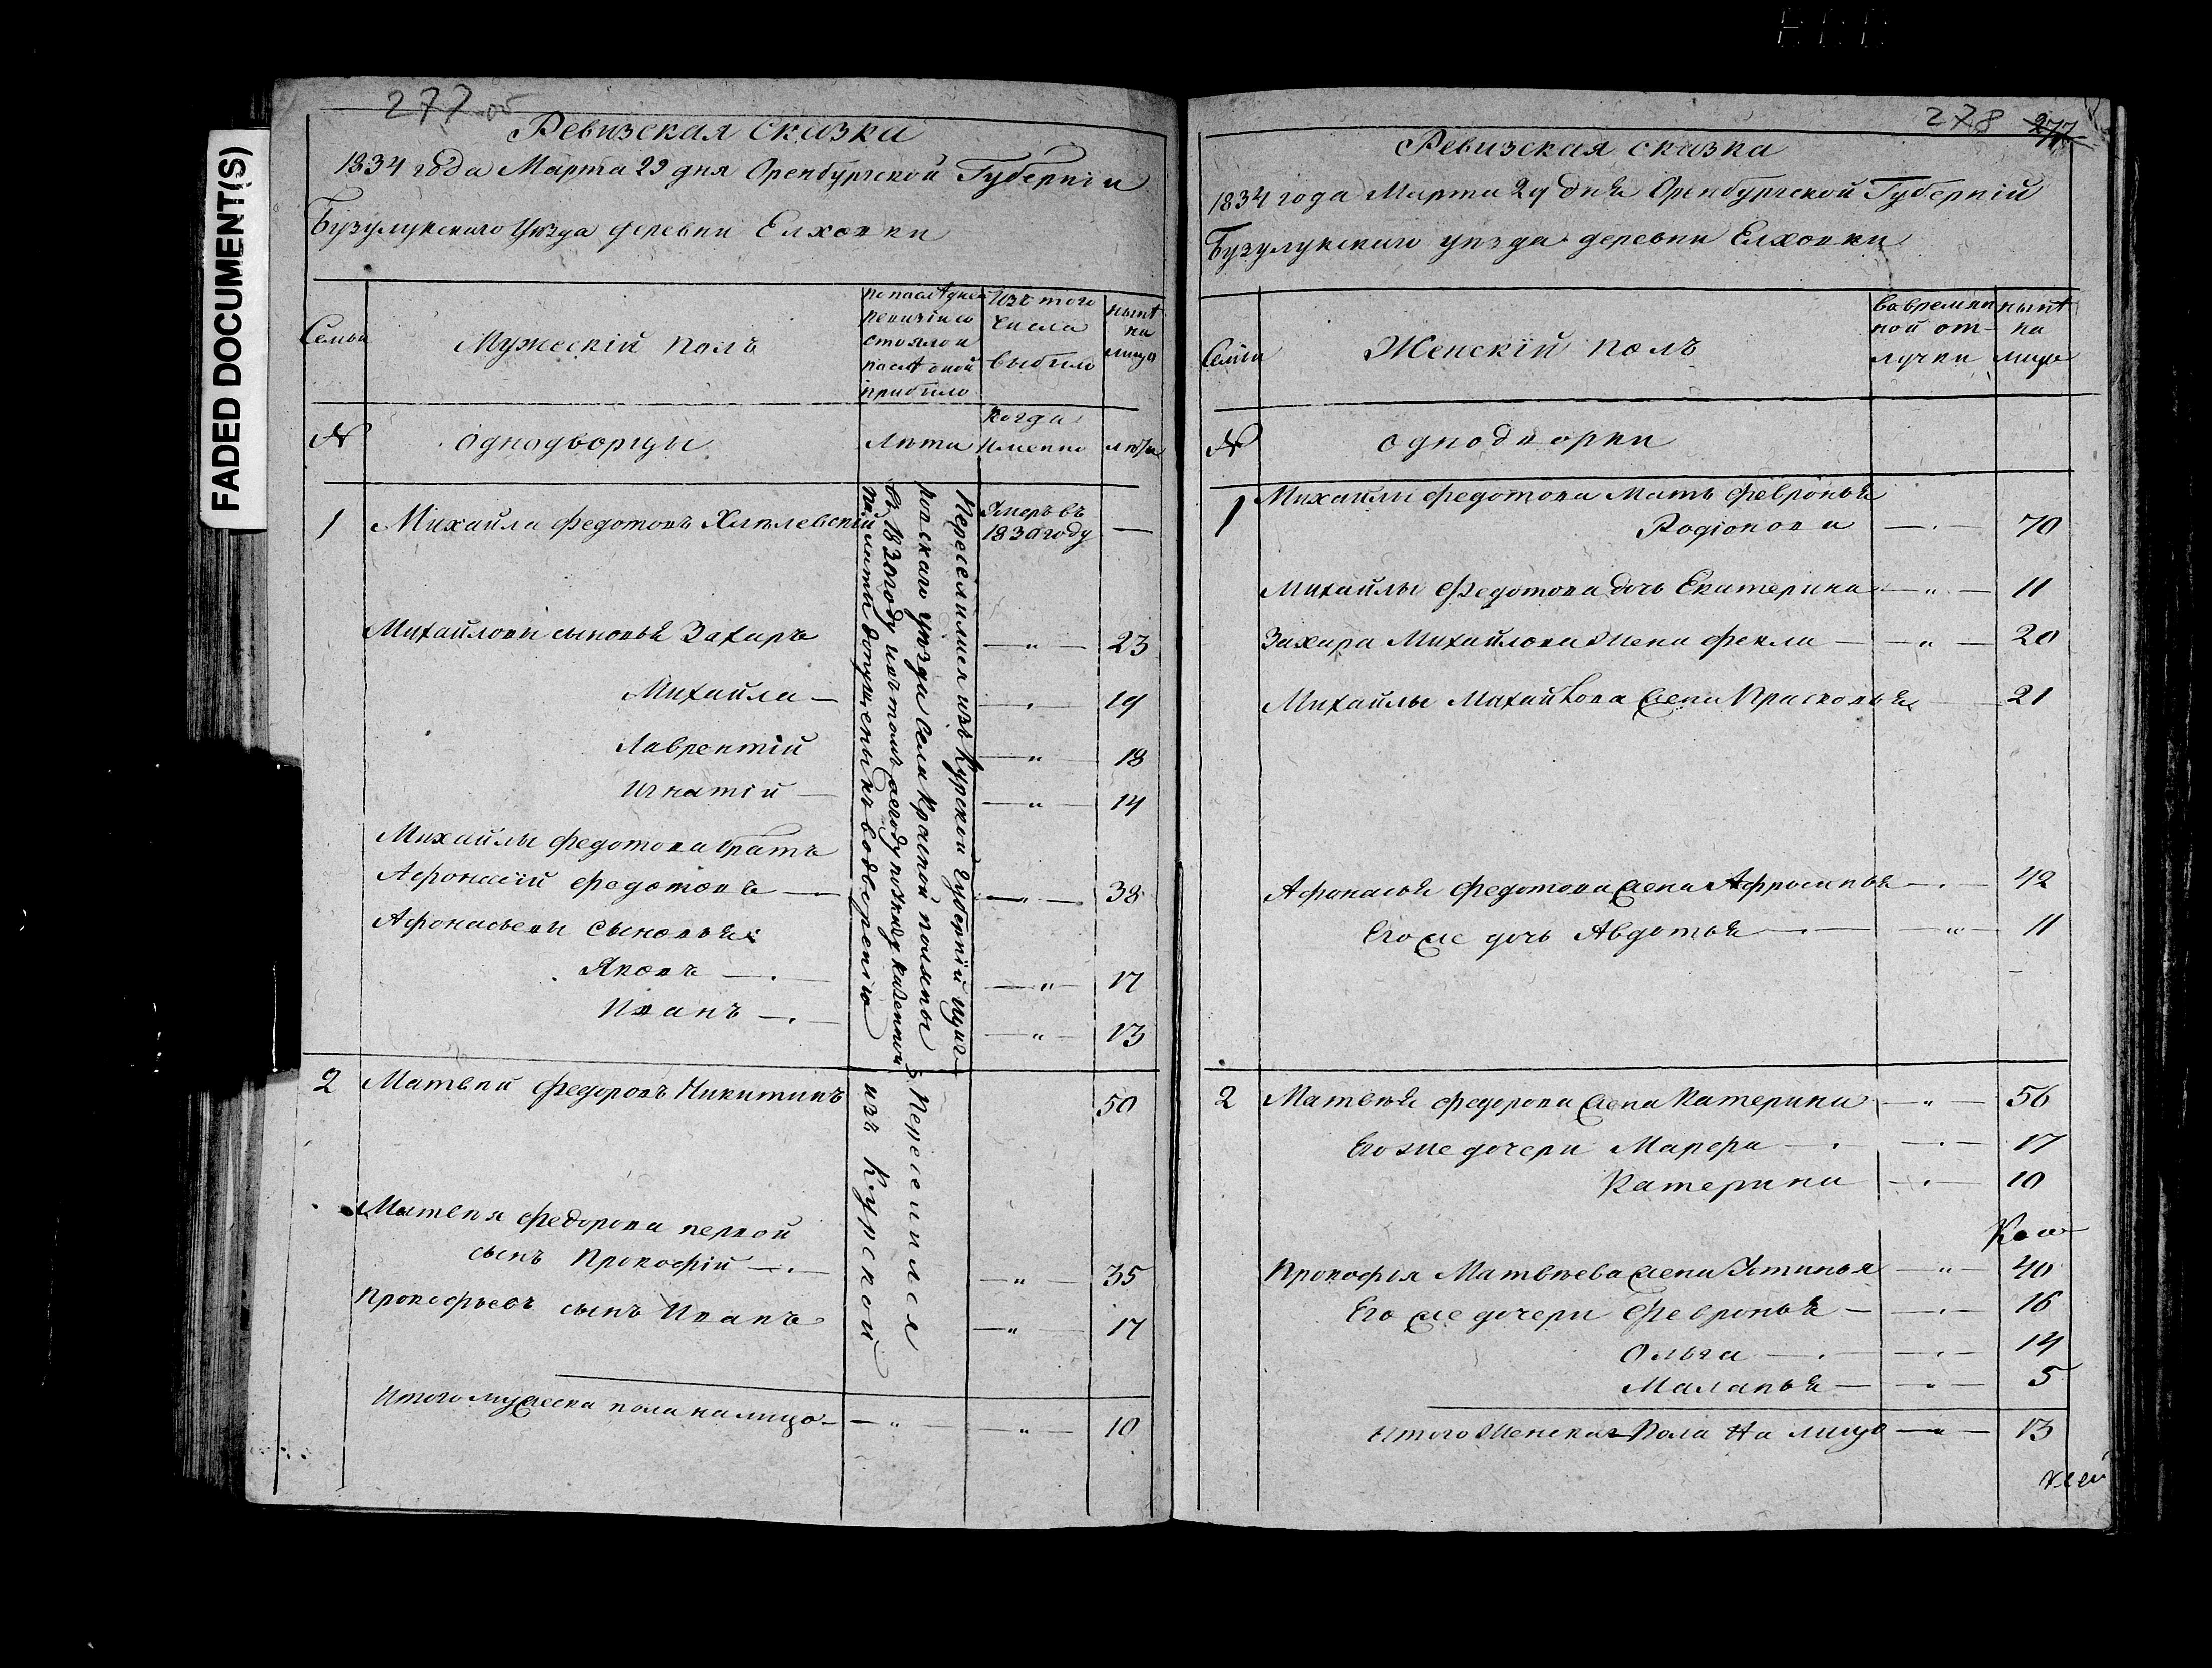 FADED DOCUMENT(S)
277 об
Ревизская сказка
1834 года Марта 29 дня Оренбургской Губерніи
Бузулукскаго Уѣзда деревни Елховки
Семьи
Мужескій полъ
по последней
ревизіи со
стояло и
послѣ оной
прибыло
Изъ того
числа
выбыло
нынѣ
на
лицо
№
однодворцы
Лѣта
когда
именно
лѣта
1
Михайла Федотовъ
Умеръ въ
1830 году
—
Михайловы сыновья Захаръ — " — 23
Михайла — — . — 19
Лаврентій — " — 18
Игнатій — — " — 14
Михайлы Федотова братъ
Афонасій Федотовъ — — " — 38
Афонасьевы сыновья:
Яковъ — . — " — 17
Иванъ — . — " — 13
Переселился изъ Курской Губерніи
уѣзда села Красной поляны
въ 1830 году и въ томъ году по казенной
допущены къ водворенію
2 Матвей Федоровъ Никитинъ 50
Матвея Федорова первой
сынъ Прокофій — . — " — 35
Прокофьевъ сынъ Иванъ — " — 17
Переселился
изъ Курской
Итого мужеска пола на лицо — " — " — 10
278 277
Ревизская сказка
1834 года Марта 29 дня Оренбургской Губерній
Бузулукскаго уѣзда деревни Елховки
Семьи
Женскій полъ
во времян
ной от-
лучки
нынѣ
на
лицо
№
однодворки
1 Михайлы Федотова Мать Февронья
Родіонова — . — 70
Михайлы Федотова дочь Екатерина — " — 11
Захара Михайлова жена Фекла — — " — 20
Михайлы Михайлова жена Прасковья — 21
Афонасья Федотова жена Афросинья — . — 42
Его же дочь Авдотья — . — " — 11
2 Матвея Федорова жена Катерина — " — 56
Его же дочери Марфа — . — . — 17
Катерина — . — 10
Прокофья Матвѣева жена Устинья — " — 40
Его же дочери Февронья — — . — 16
Ольга — . — . — 14
Маланья — — " — 5
Итого Женска Пола На лицо — " — 13